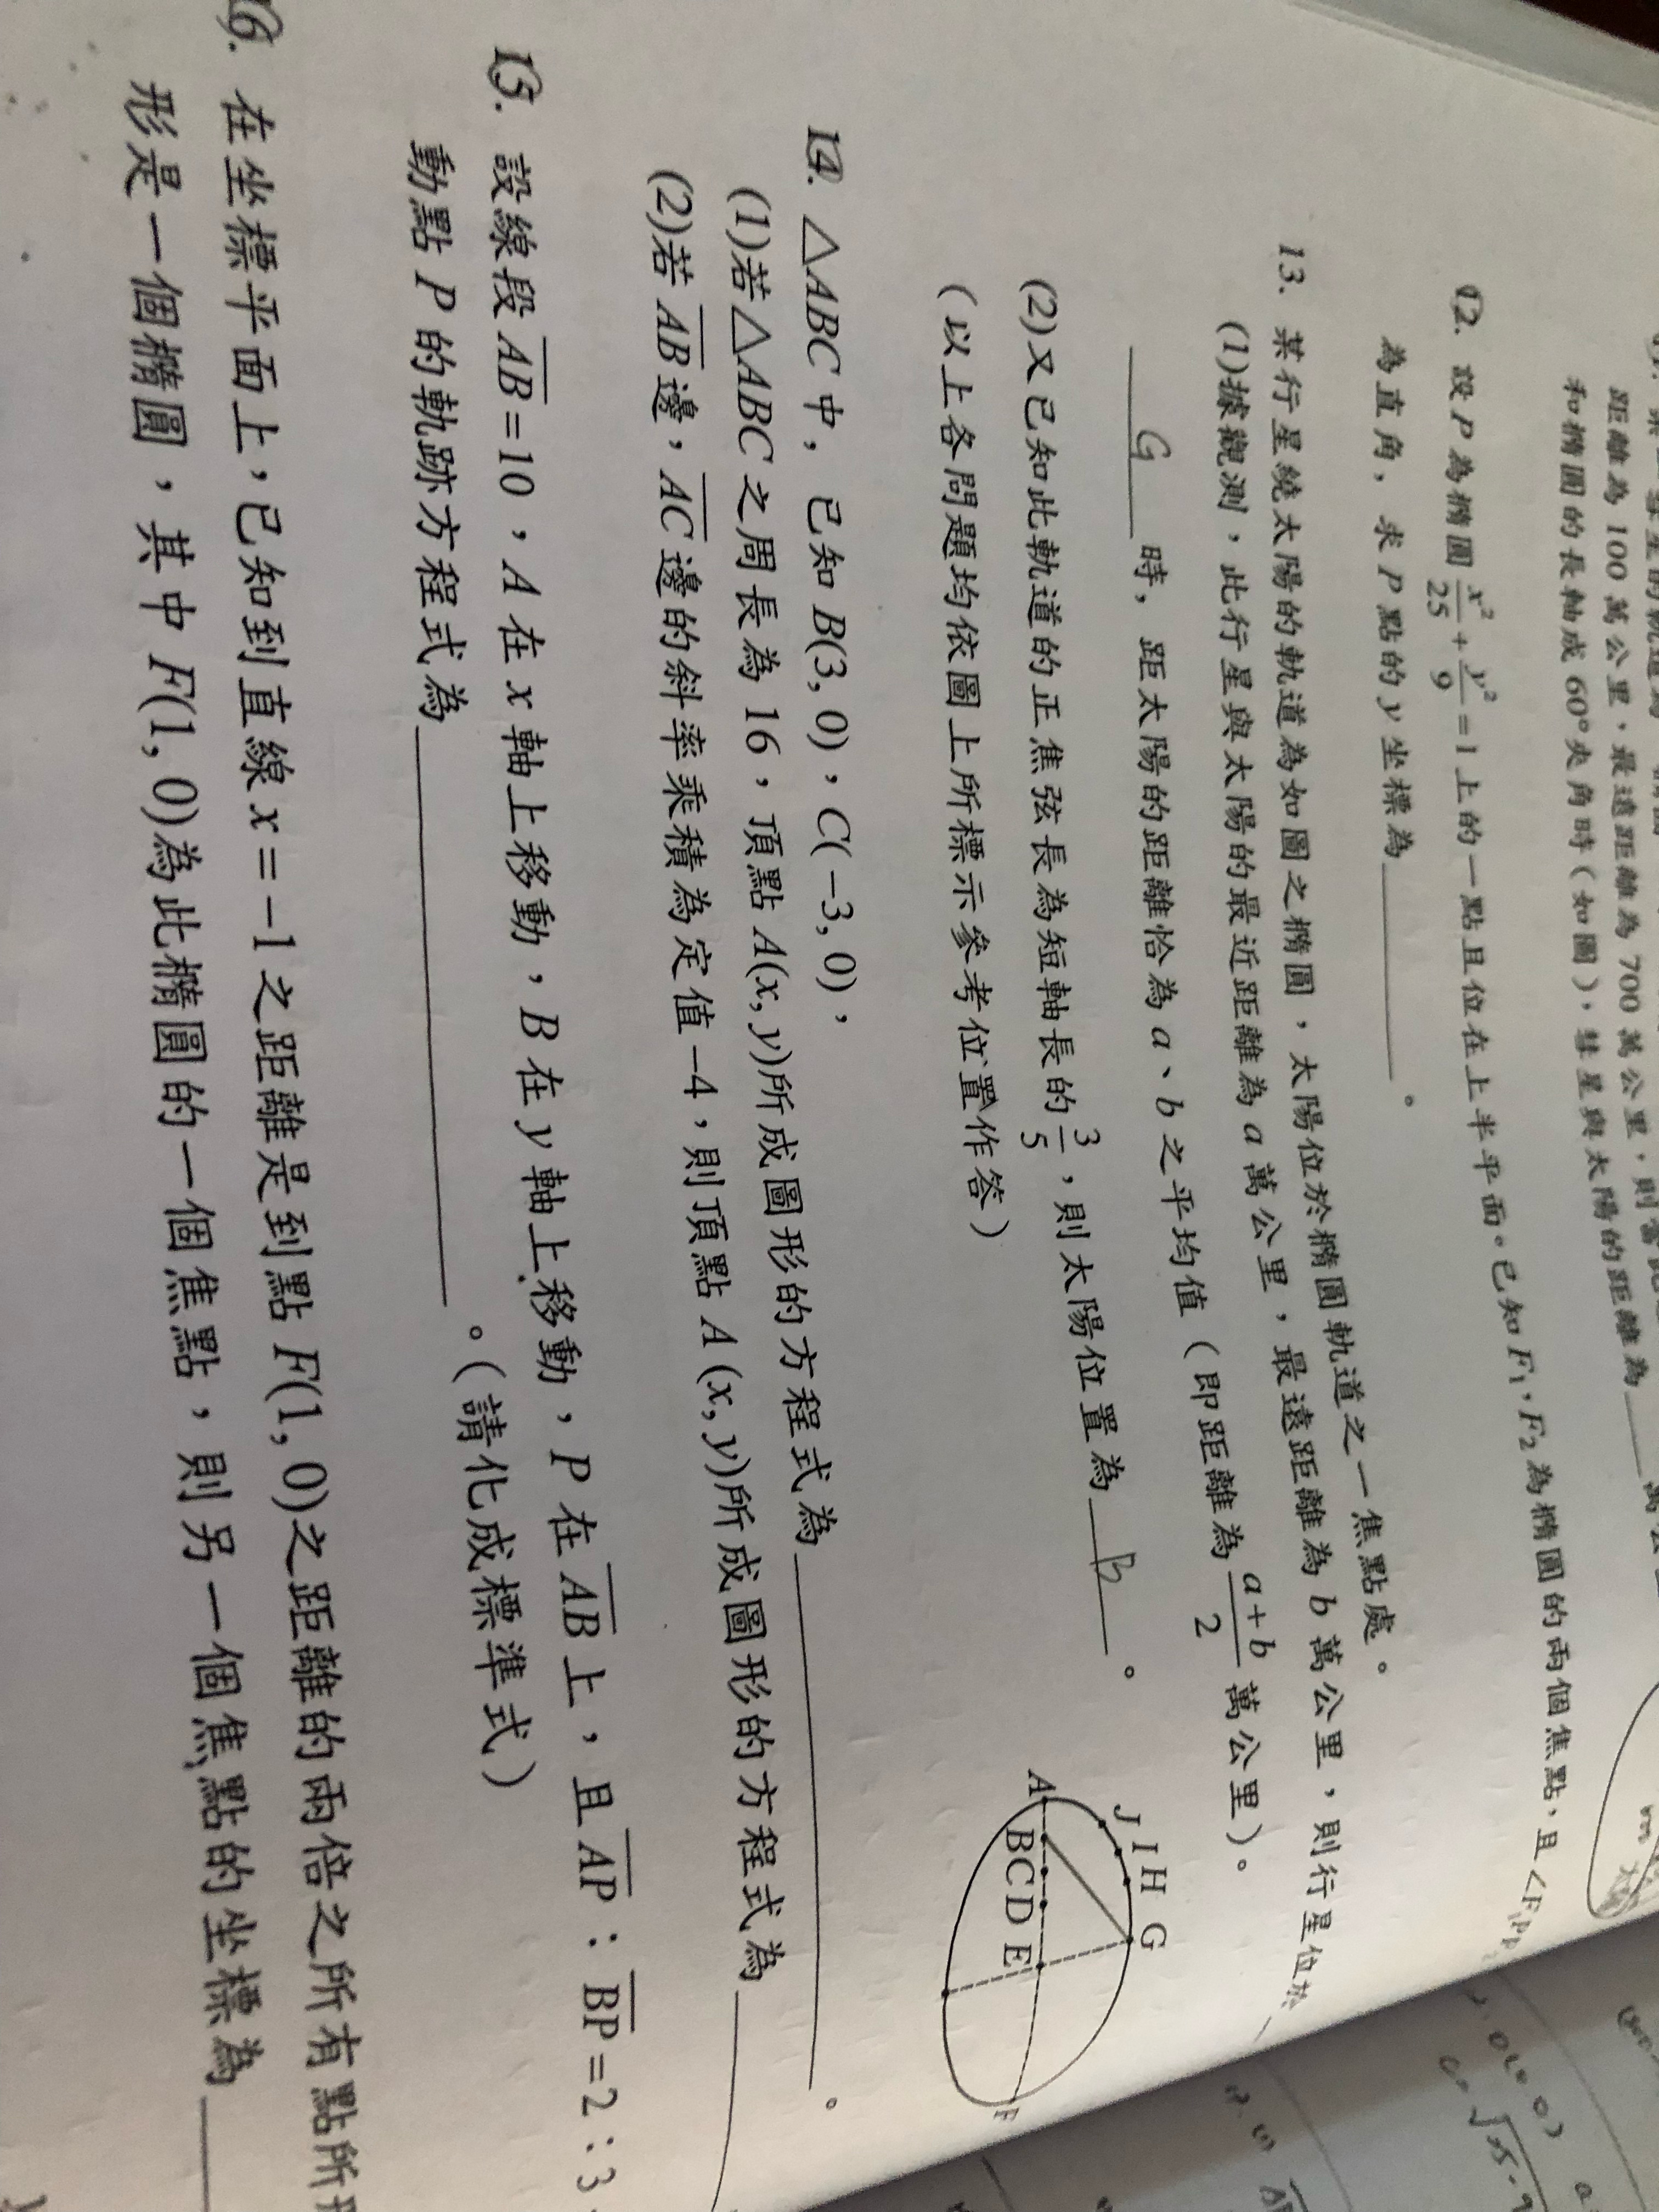 距離為 100 萬公里，最遠距離為 700 萬公里，則當此
和橢圓的長軸成 60° 夾角時（如圖），彗星與太陽的距離為____萬公
12. 設 P 為橢圓 x²/25 + y²/9 = 1 上的一點且位在上半平面。已知 F₁，F₂ 為橢圓的兩個焦點，且 ∠F₁PF₂
為直角，求 P 點的 y 坐標為________。
13. 某行星繞太陽的軌道為如圖之橢圓，太陽位於橢圓軌道之一焦點處。
(1)據觀測，此行星與太陽的最近距離為 a 萬公里，最遠距離為 b 萬公里，則行星位於
G 時，距太陽的距離恰為 a、b 之平均值（即距離為 (a+b)/2 萬公里）。
(2)又已知此軌道的正焦弦長為短軸長的 3/5，則太陽位置為 B 。
（以上各問題均依圖上所標示參考位置作答）
J I H G
A
B C D E
F
14. △ABC 中，已知 B(3, 0)，C(−3, 0)，
(1)若△ABC 之周長為 16，頂點 A(x, y)所成圖形的方程式為________。
(2)若 AB 邊，AC 邊的斜率乘積為定值−4，則頂點 A (x, y)所成圖形的方程式為________
15. 設線段 AB = 10，A 在 x 軸上移動，B 在 y 軸上移動，P 在 AB 上，且 AP：BP = 2：3
動點 P 的軌跡方程式為________。（請化成標準式）
16. 在坐標平面上，已知到直線 x = −1 之距離是到點 F(1, 0)之距離的兩倍之所有點所形
形是一個橢圓，其中 F(1, 0)為此橢圓的一個焦點，則另一個焦點的坐標為____